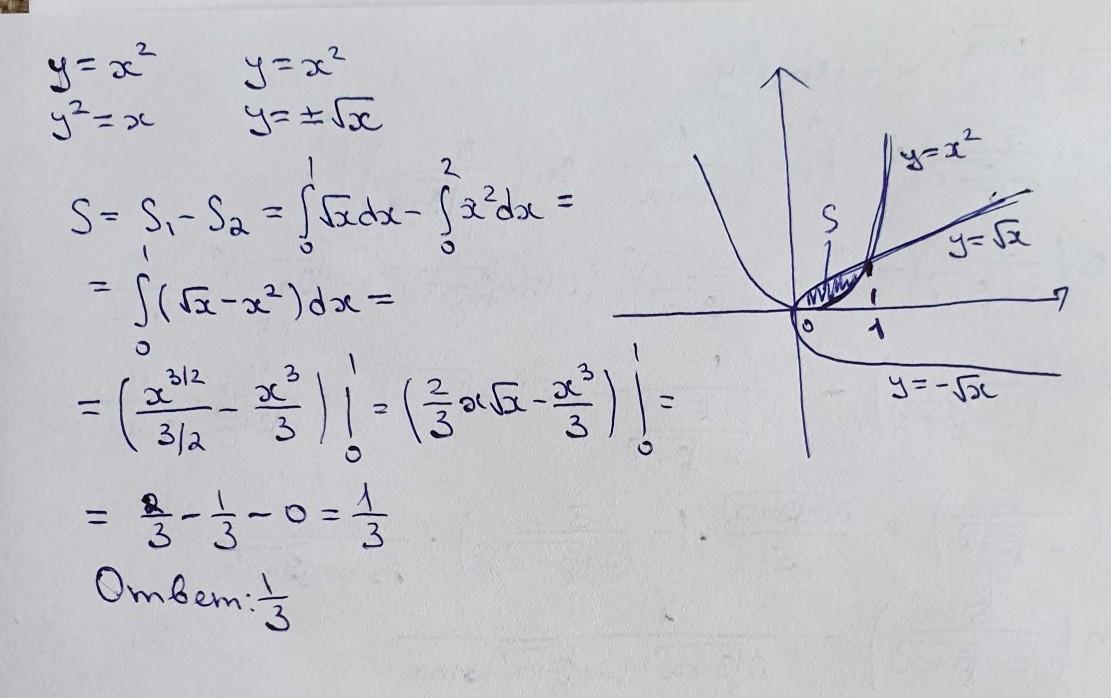 y = x² y = x²
y² = x y = ±√x
S = S₁ - S₂ = ∫₀¹ √x dx - ∫₀² x² dx =
= ∫₀¹ (√x - x²) dx =
= (x^{3/2}/(3/2) - x³/3) |₀¹ = (2/3 x√x - x³/3) |₀¹ =
= 2/3 - 1/3 - 0 = 1/3
Ответ: 1/3
y = x²
S
y = √x
0 1
y = -√x